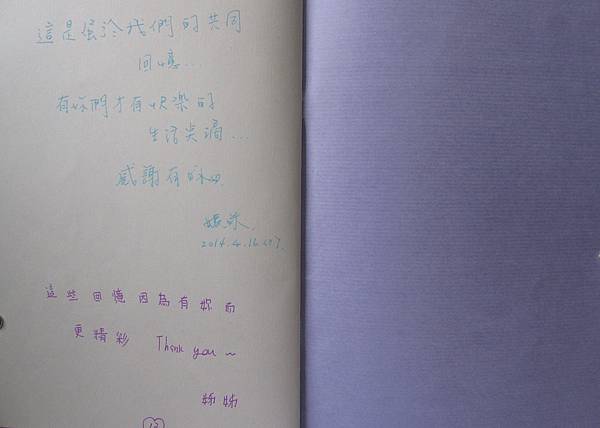 這是屬於我們的共同
回憶...
有妳們才有快樂的
生活点滴...
感謝有
2014.4.16
這些回憶因為有妳而
更精彩 Thank you～
姊姊